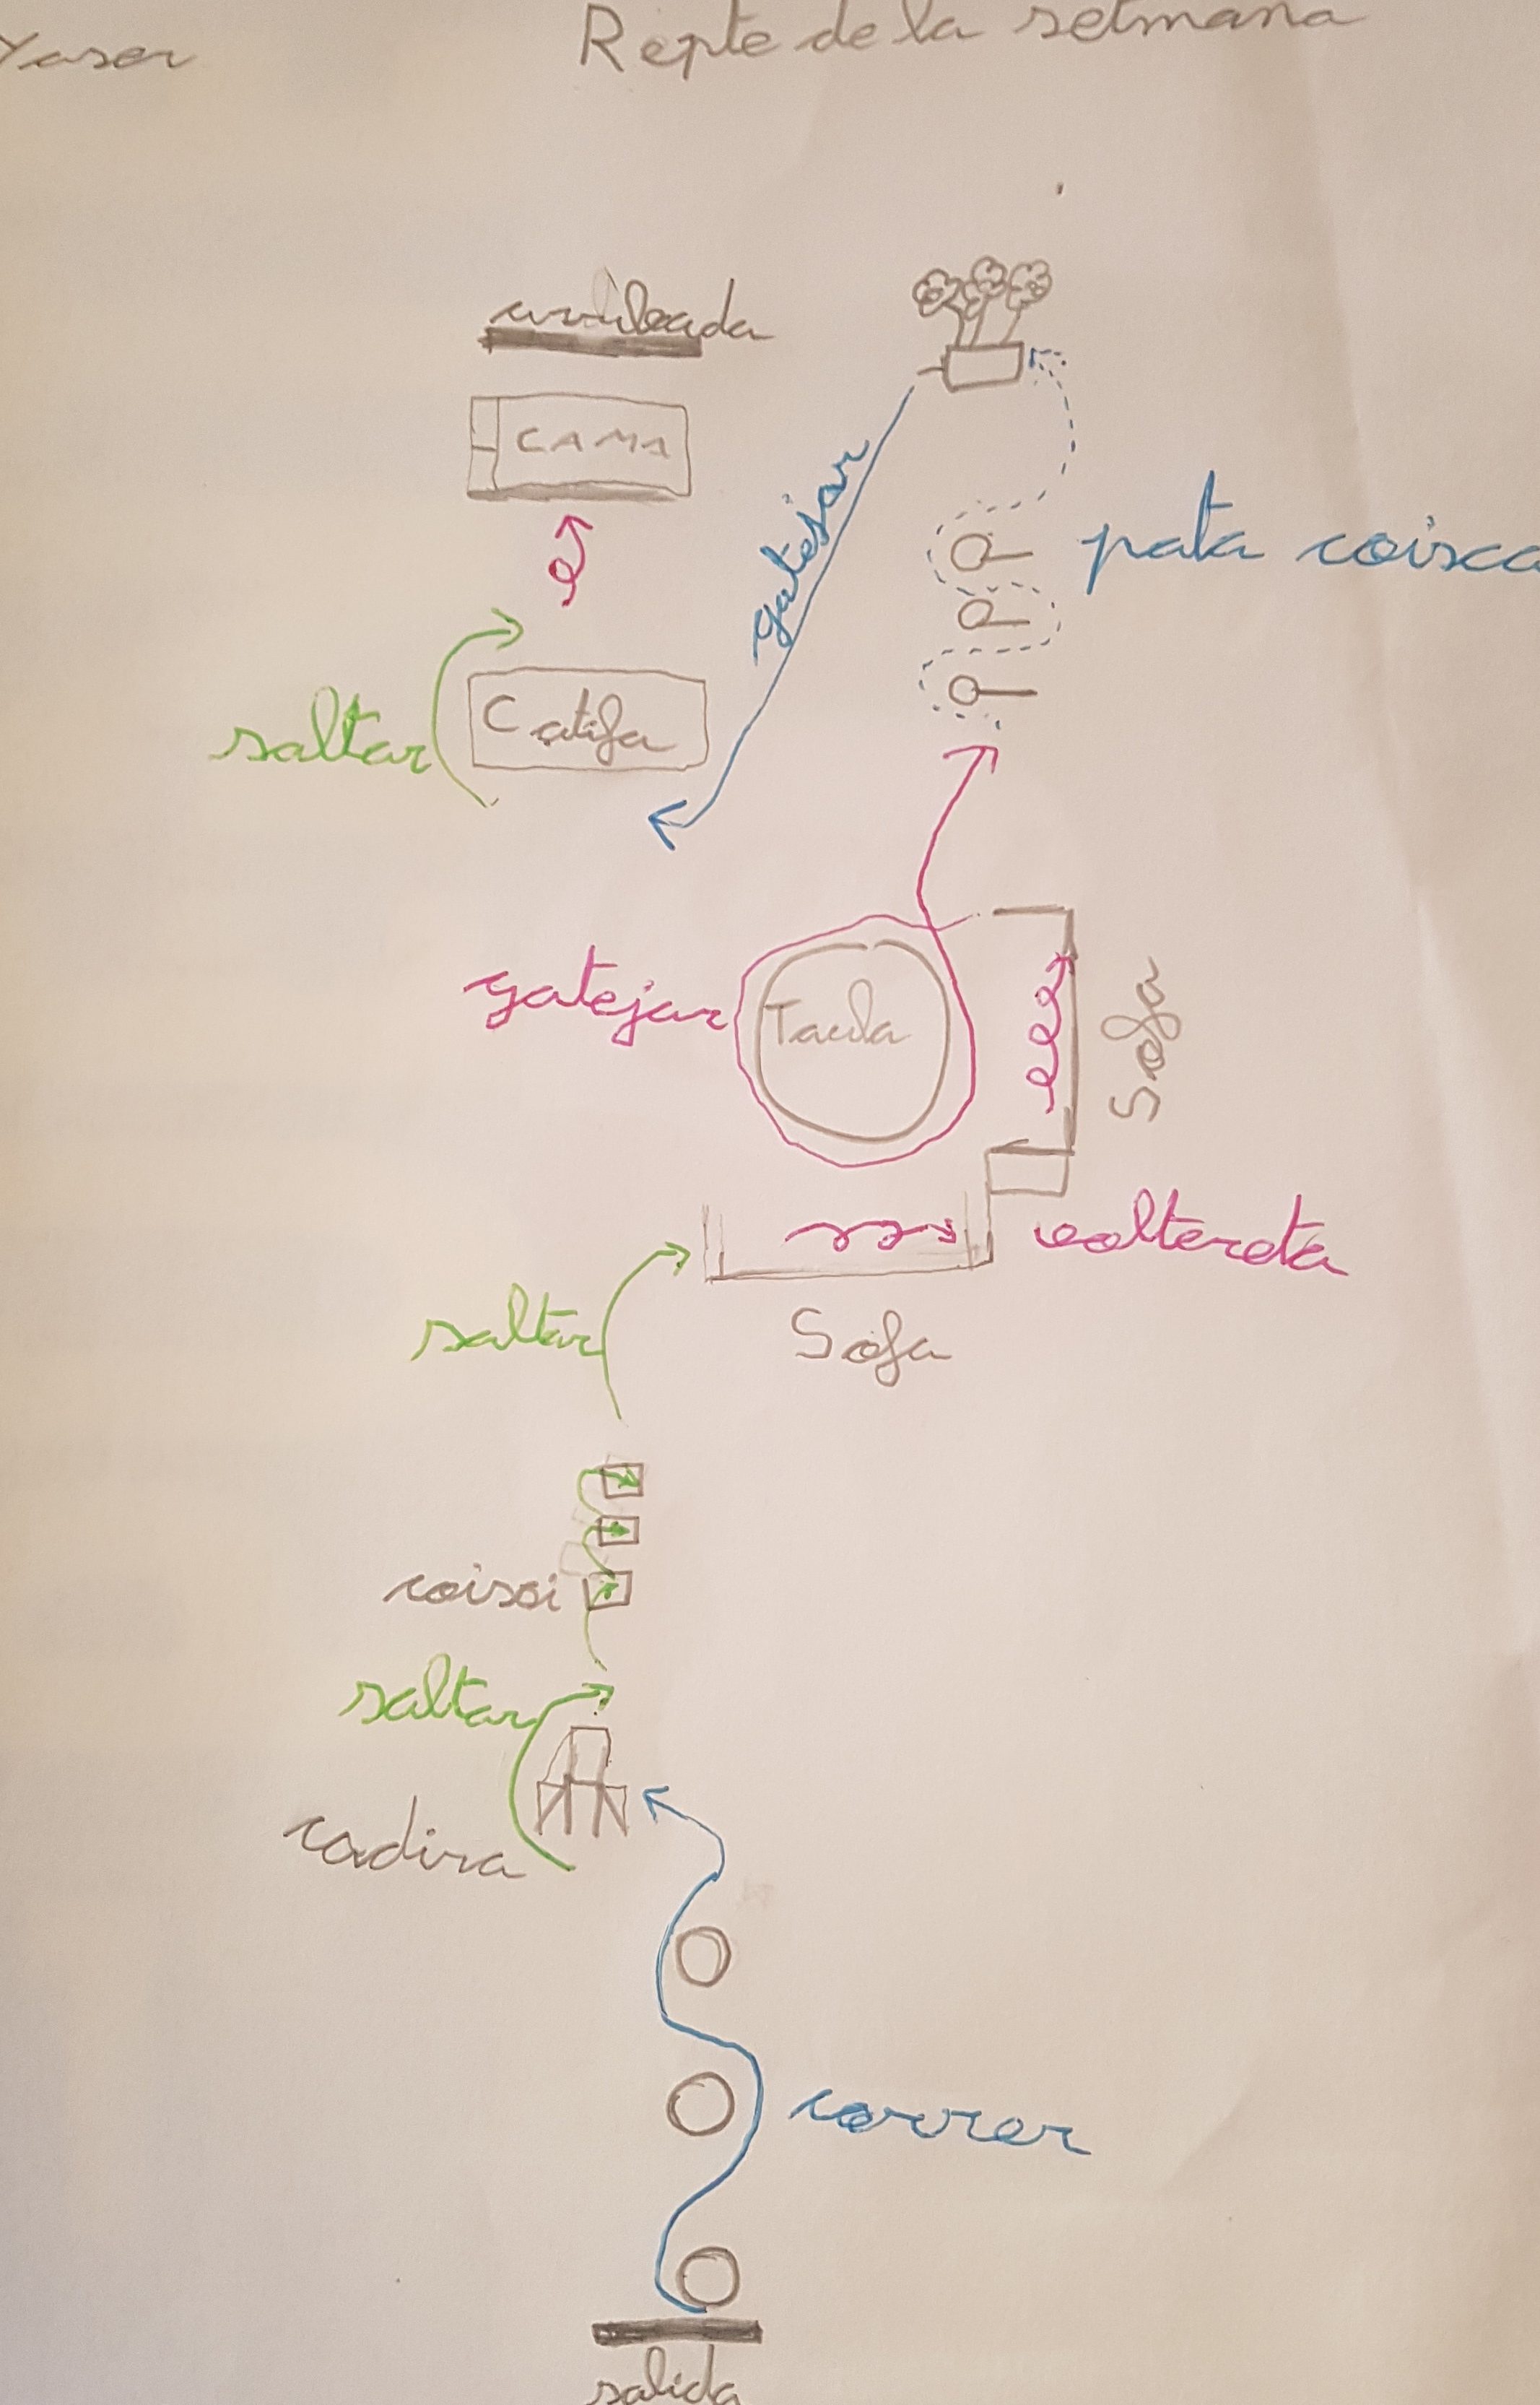 Yaser
Repte de la setmana
CAMA
gatejar
pata coixa
saltar
Catifa
gatejar
Taula
Sofa
voltereta
saltar
Sofa
coixi
saltar
cadira
correr
salida